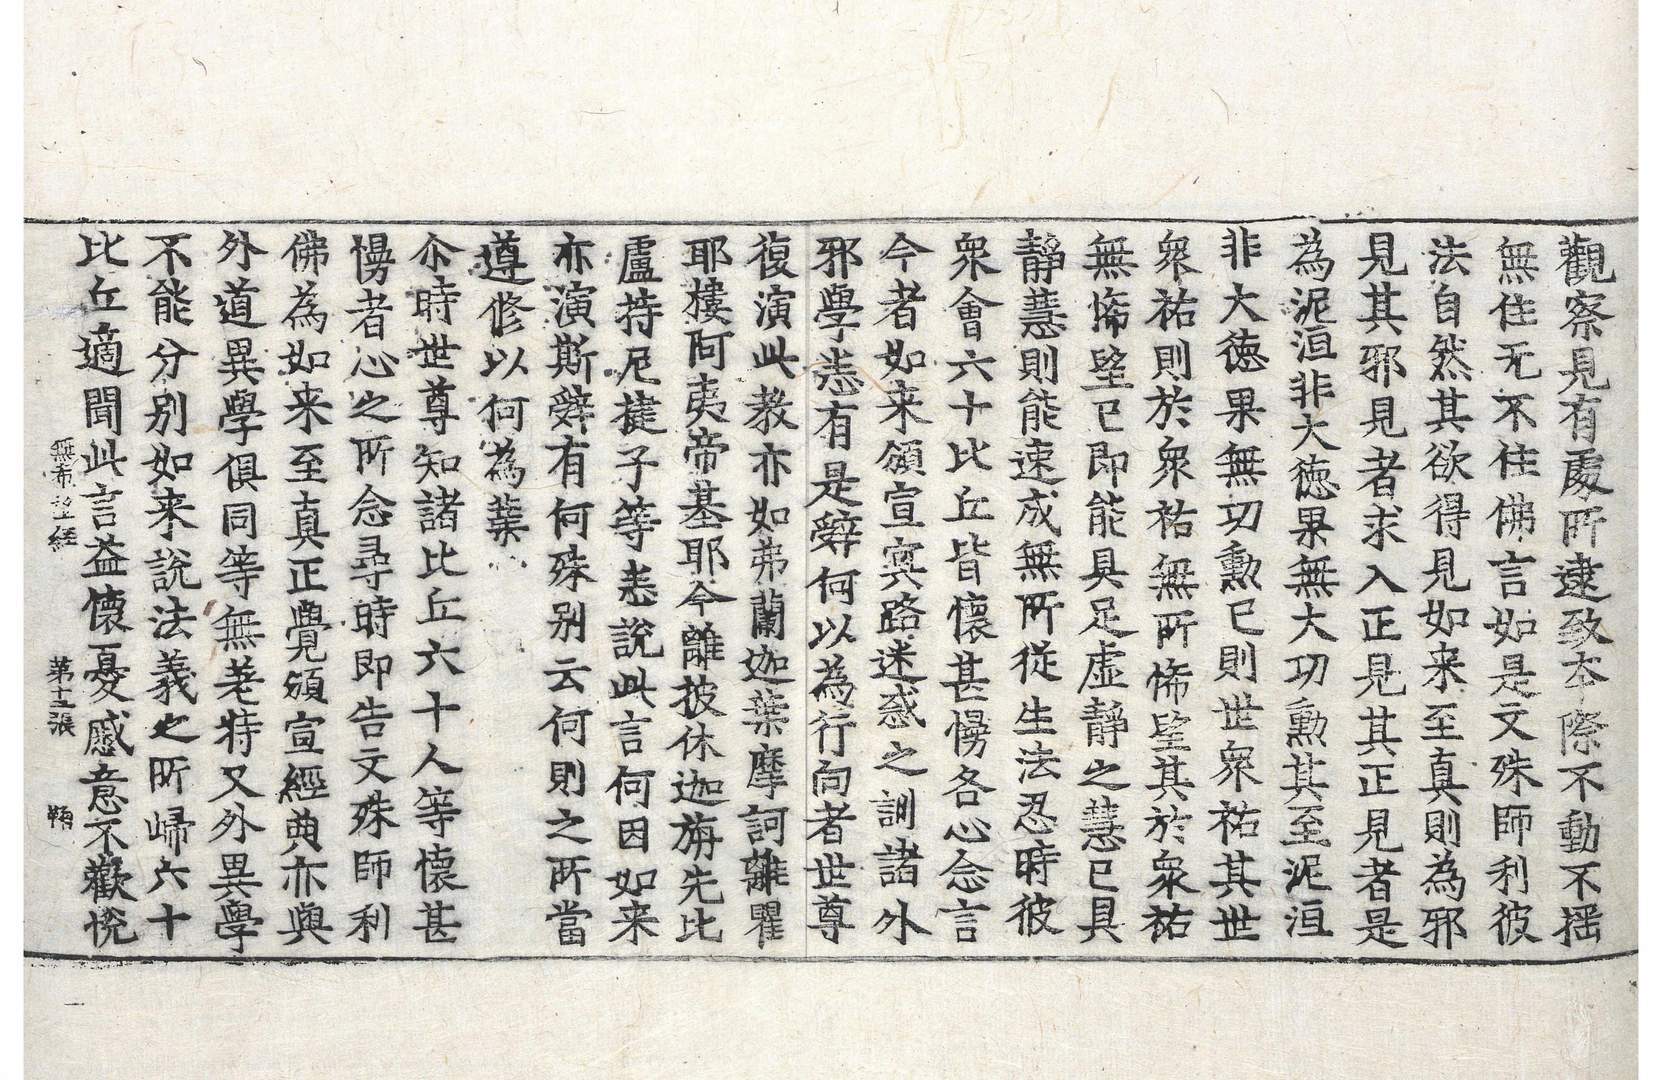 觀察見有處所逮致本際不動不揺
無住无不住佛言如是文殊師利彼
法自然其欲得見如来至真則為邪
見其邪見者求入正見其正見者是
為泥洹非大徳果無大功勲其至泥洹
非大徳果無功勲已則世衆祐其世
衆祐則於衆祐無所悕望其於衆祐
無悕望已即能具足虚靜之慧已具
靜慧則能速成無所從生法忍時彼
衆會六十比丘皆懷甚愕各心念言
今者如来頒宣冥路迷惑之訓諸外
邪學恙有是辭何以為行向者世尊
復演此教亦如弗蘭迦葉摩訶離瞿
耶樓阿夷帝基耶今離披休迦旃先比
盧持尼揵子等恙說此言何因如来
亦演斯辭有何殊别云何則之所當
遵修以何為業
尒時世尊知諸比丘六十人等懷甚
愕者心之所念尋時即告文殊師利
佛為如来至真正覺頒宣經典亦與
外道異學俱同等無差特又外異學
不能分别如来說法義之所歸六十
比丘適聞此言益懷憂慼意不歡悅
無希望經　第十五張